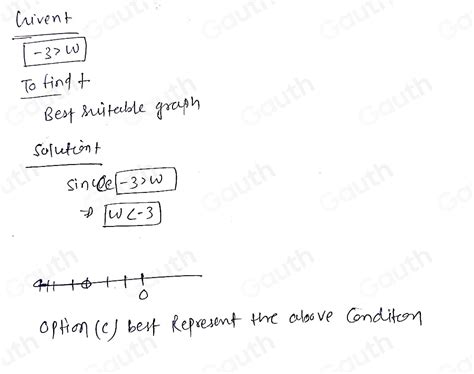 Given +
-3>W
To find +
Best suitable graph
Solution +
since -3>W
⇒ W<-3
0
Option (c) best Represent the above Conditon
Gauth